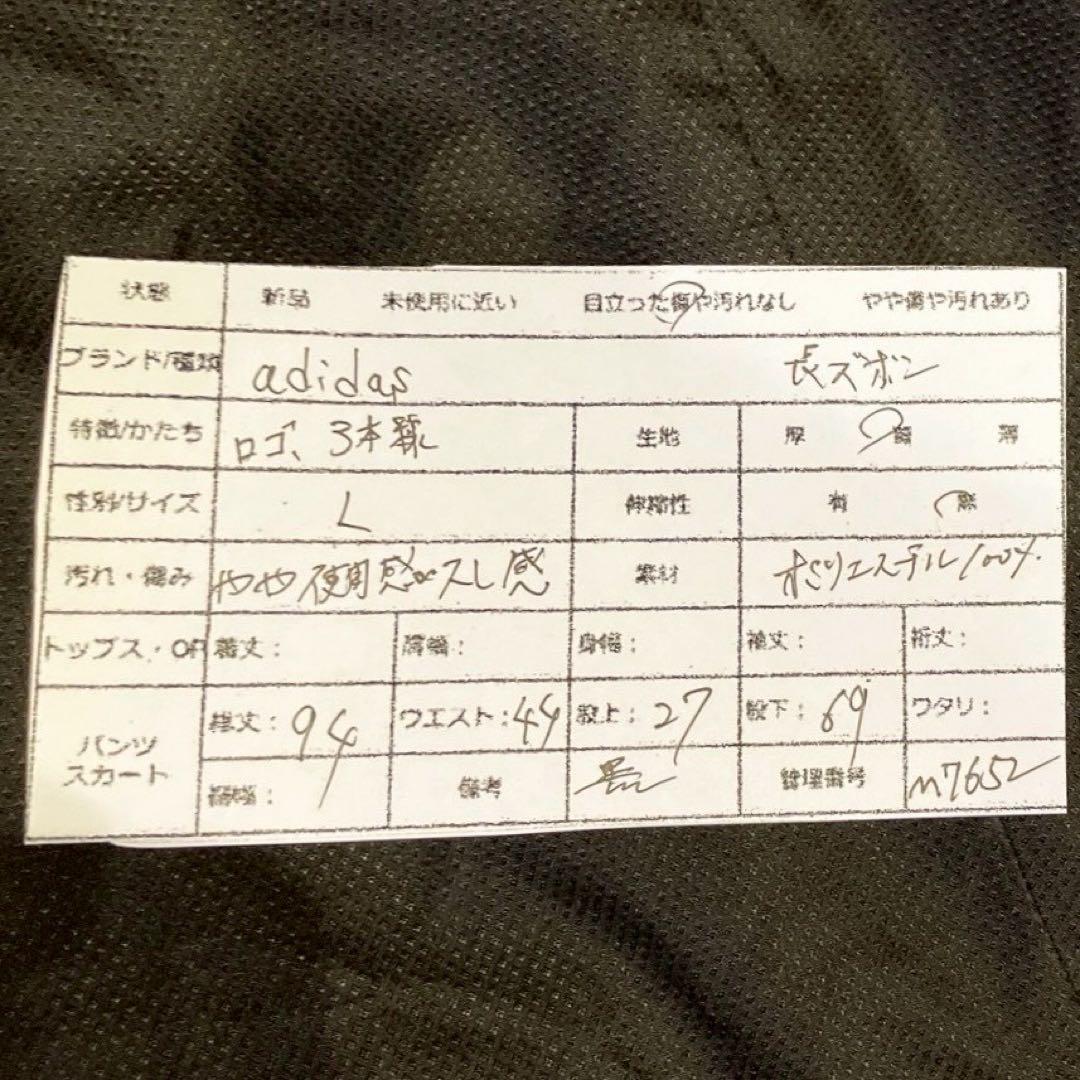 状態 新品 未使用に近い 目立った傷や汚れなし やや傷や汚れあり
ブランド/種類 adidas 長ズボン
特徴/かたち ロゴ、3本線 生地 厚 普 薄
性別/サイズ L 伸縮性 有 無
汚れ・傷み やや使用感やスレ感 素材 ポリエステル100%
トップス・OP 着丈: 肩幅: 身幅: 袖丈: 裄丈:
パンツ スカート 総丈:94 ウエスト:44 股上:27 股下:69 ワタリ:
裾幅: 備考 管理番号 m7652